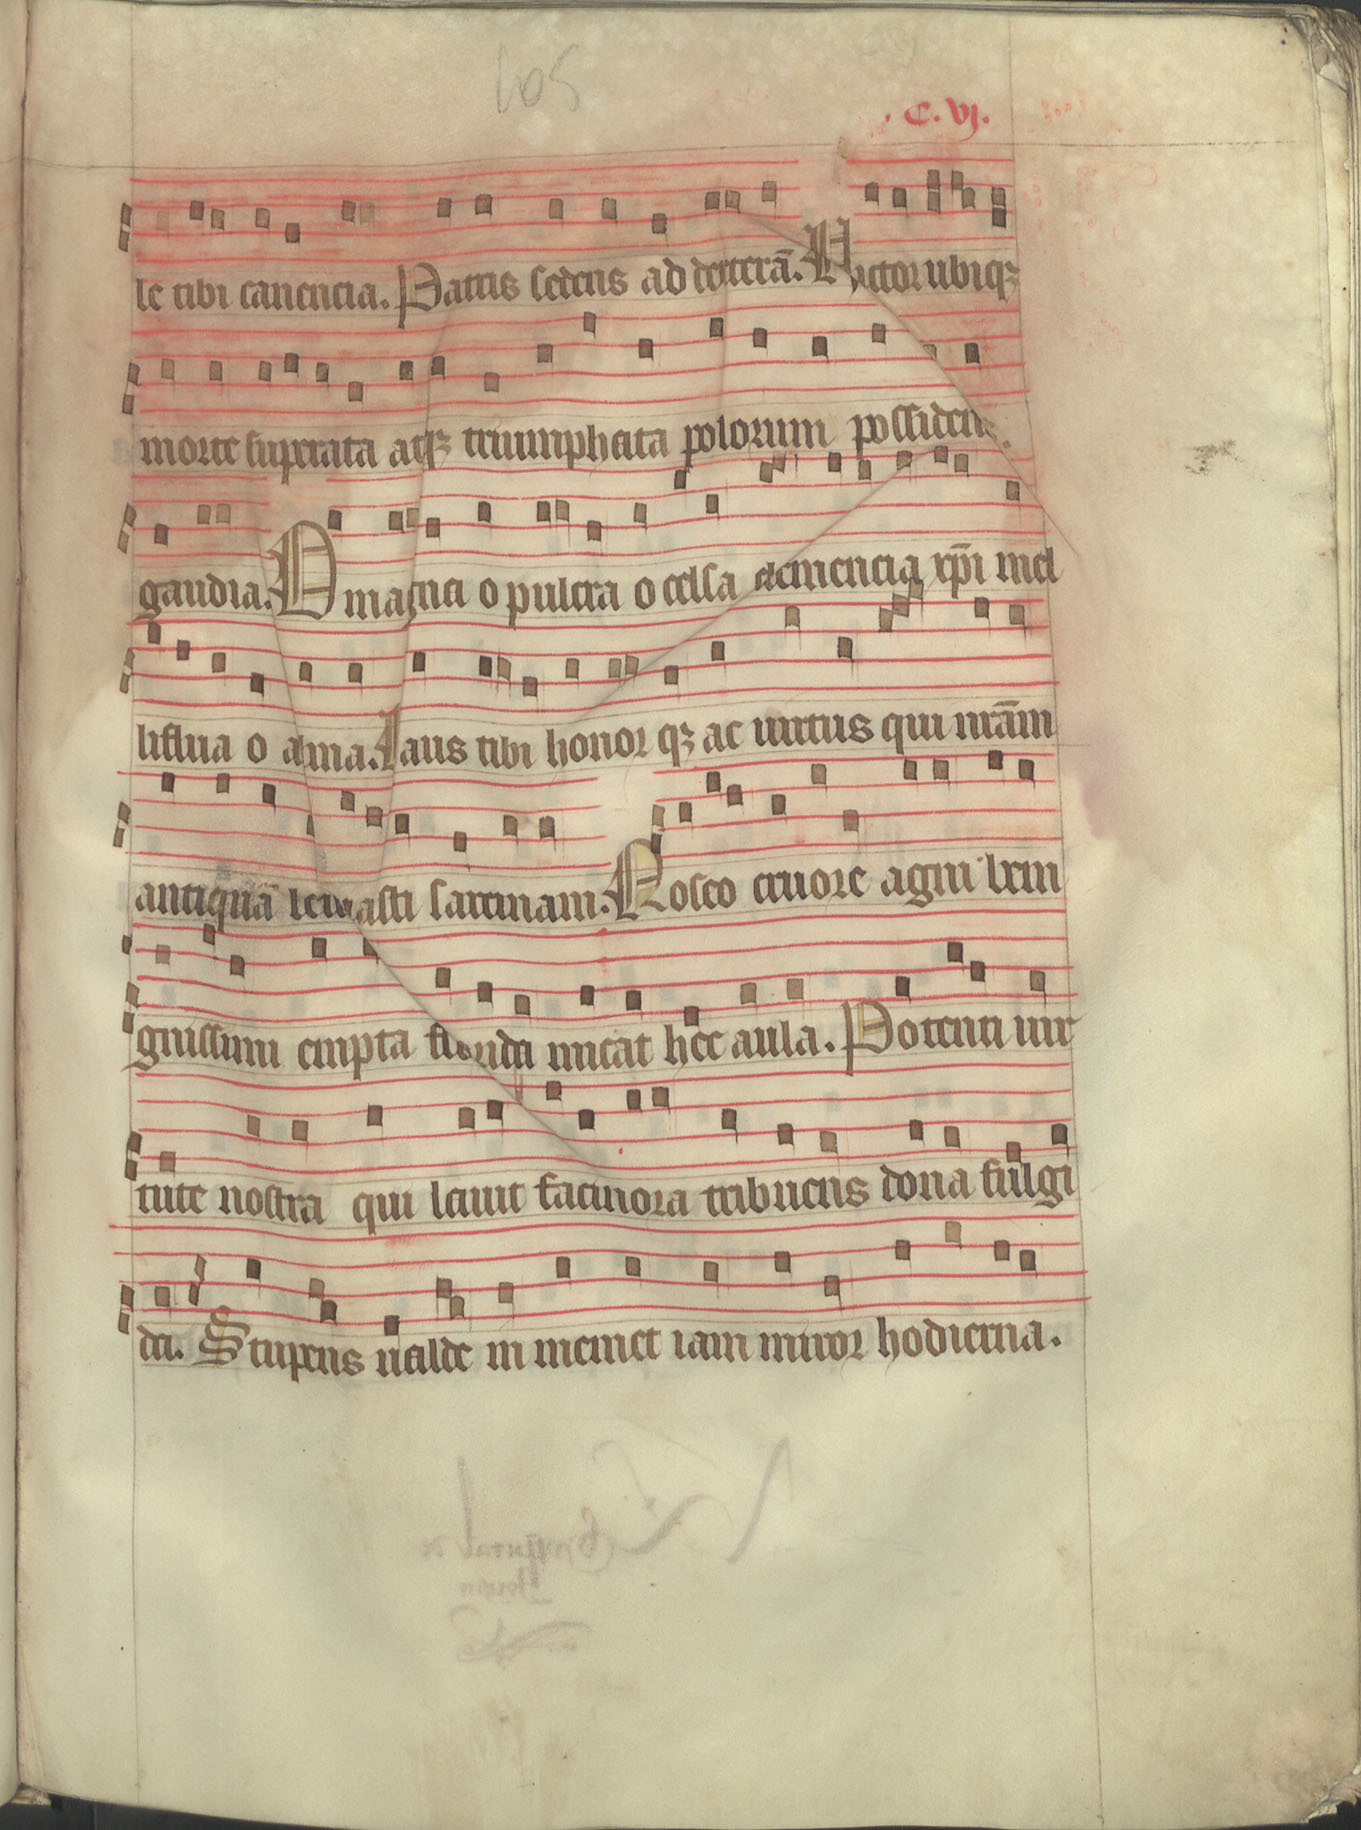 105
.C.vj.
le tibi canencia. Patris sedens ad dexterā. Victor ubiqꝫ
morte superata atqꝫ triumphata polorum possidens
gaudia. O magna o pulcra o celsa clemencia xp̄i mel
liflua o alma. Laus tibi honor qꝫ ac uirtus qui nr̄am
antiquā leuasti sarcinam. Roseo cruore agni beni
gnissimi empta florida micat hec aula. Potenti uir
tute nostra qui lauit facinora tribuens dona fulgi
da. Stupens ualde in memet iam miror hodierna.